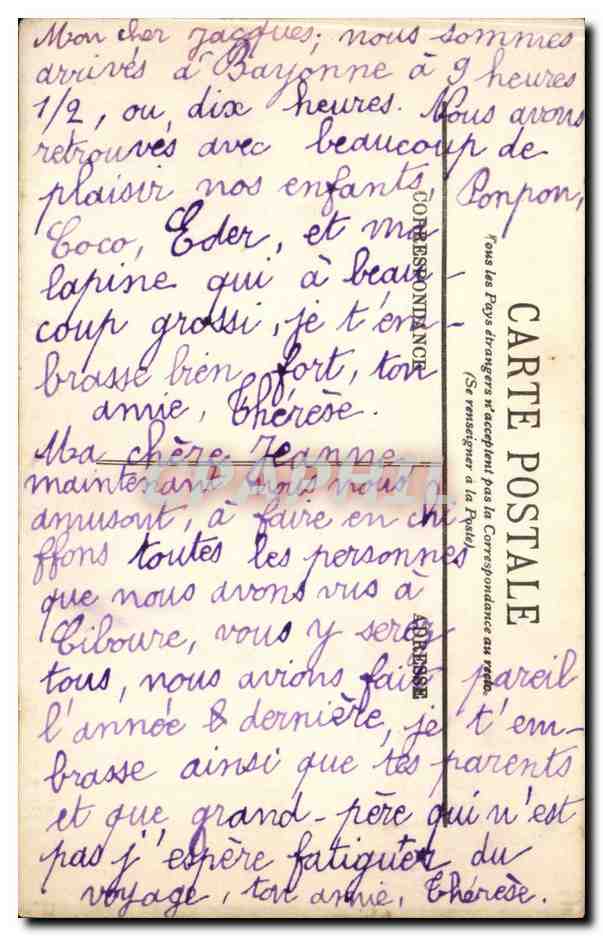 Mon cher Jacques; nous sommes
arrivés à Bayonne à 9 heures
1/2, ou, dix heures. Nous avons
retrouvés avec beaucoup de
plaisir nos enfants, Ponpon,
Coco, Eder, et ma
lapine qui à beau-
coup grossi, je t'em-
brasse bien fort, ton
amie, Thérèse.
Ma chère Jeanne,
maintenant nous nous
amusont, à faire en chi-
ffons toutes les personnes
que nous avons vus à
Ciboure, vous y serez
tous, nous avions fait pareil
l'année dernière, je t'em-
brasse ainsi que tes parents
et que grand-père qui n'est
pas j'espère fatiguer du
voyage, ton amie, Thérèse.
CARTE POSTALE
Tous les Pays étrangers n'acceptent pas la Correspondance au recto.
(Se renseigner à la Poste)
CORRESPONDANCE
ADRESSE
CPAPHIL